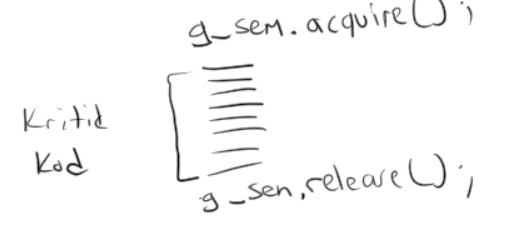 g_sem.acquire();
Kritik
Kod
g_sen.release();